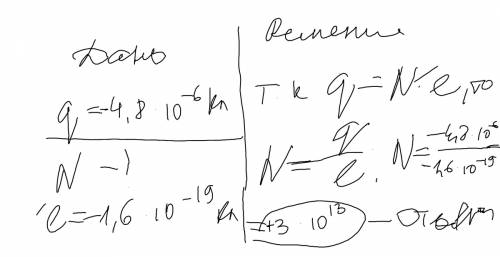 Дано
q = -4,8 · 10^-6 кл
N - ?
e = -1,6 · 10^-19 кл
Решение
Т. к q = N · e, то
N = q/e. N = -4,8 · 10^-6 / -1,6 · 10^-19
= +3 · 10^13 - Ответ